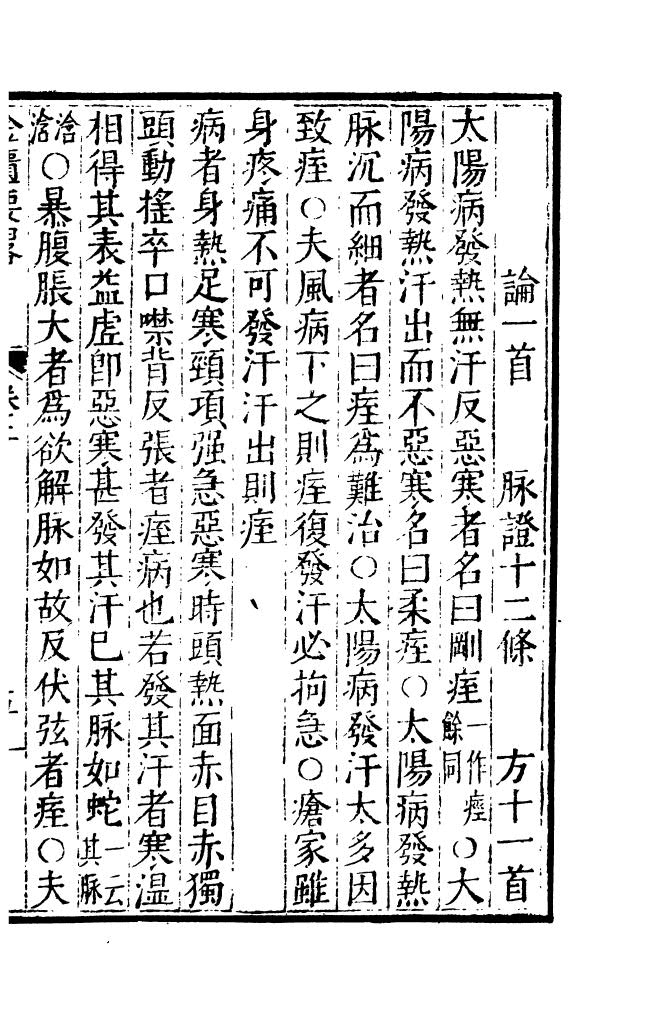 論一首　脉證十二條　方十一首
太陽病發熱無汗反惡寒者名曰剛痓一作痙餘同〇太
陽病發熱汗出而不惡寒名曰柔痓〇太陽病發熱
脉沉而細者名曰痓為難治〇太陽病發汗太多因
致痓〇夫風病下之則痓復發汗必拘急〇瘡家雖
身疼痛不可發汗汗出則痓
病者身熱足寒頸項强急惡寒時頭熱面赤目赤獨
頭動搖卒口噤背反張者痓病也若發其汗者寒濕
相得其表益虛即惡寒甚發其汗已其脉如蛇一云其脉
浛浛〇暴腹脹大者為欲解脉如故反伏弦者痓〇夫
金匱要畧　卷上